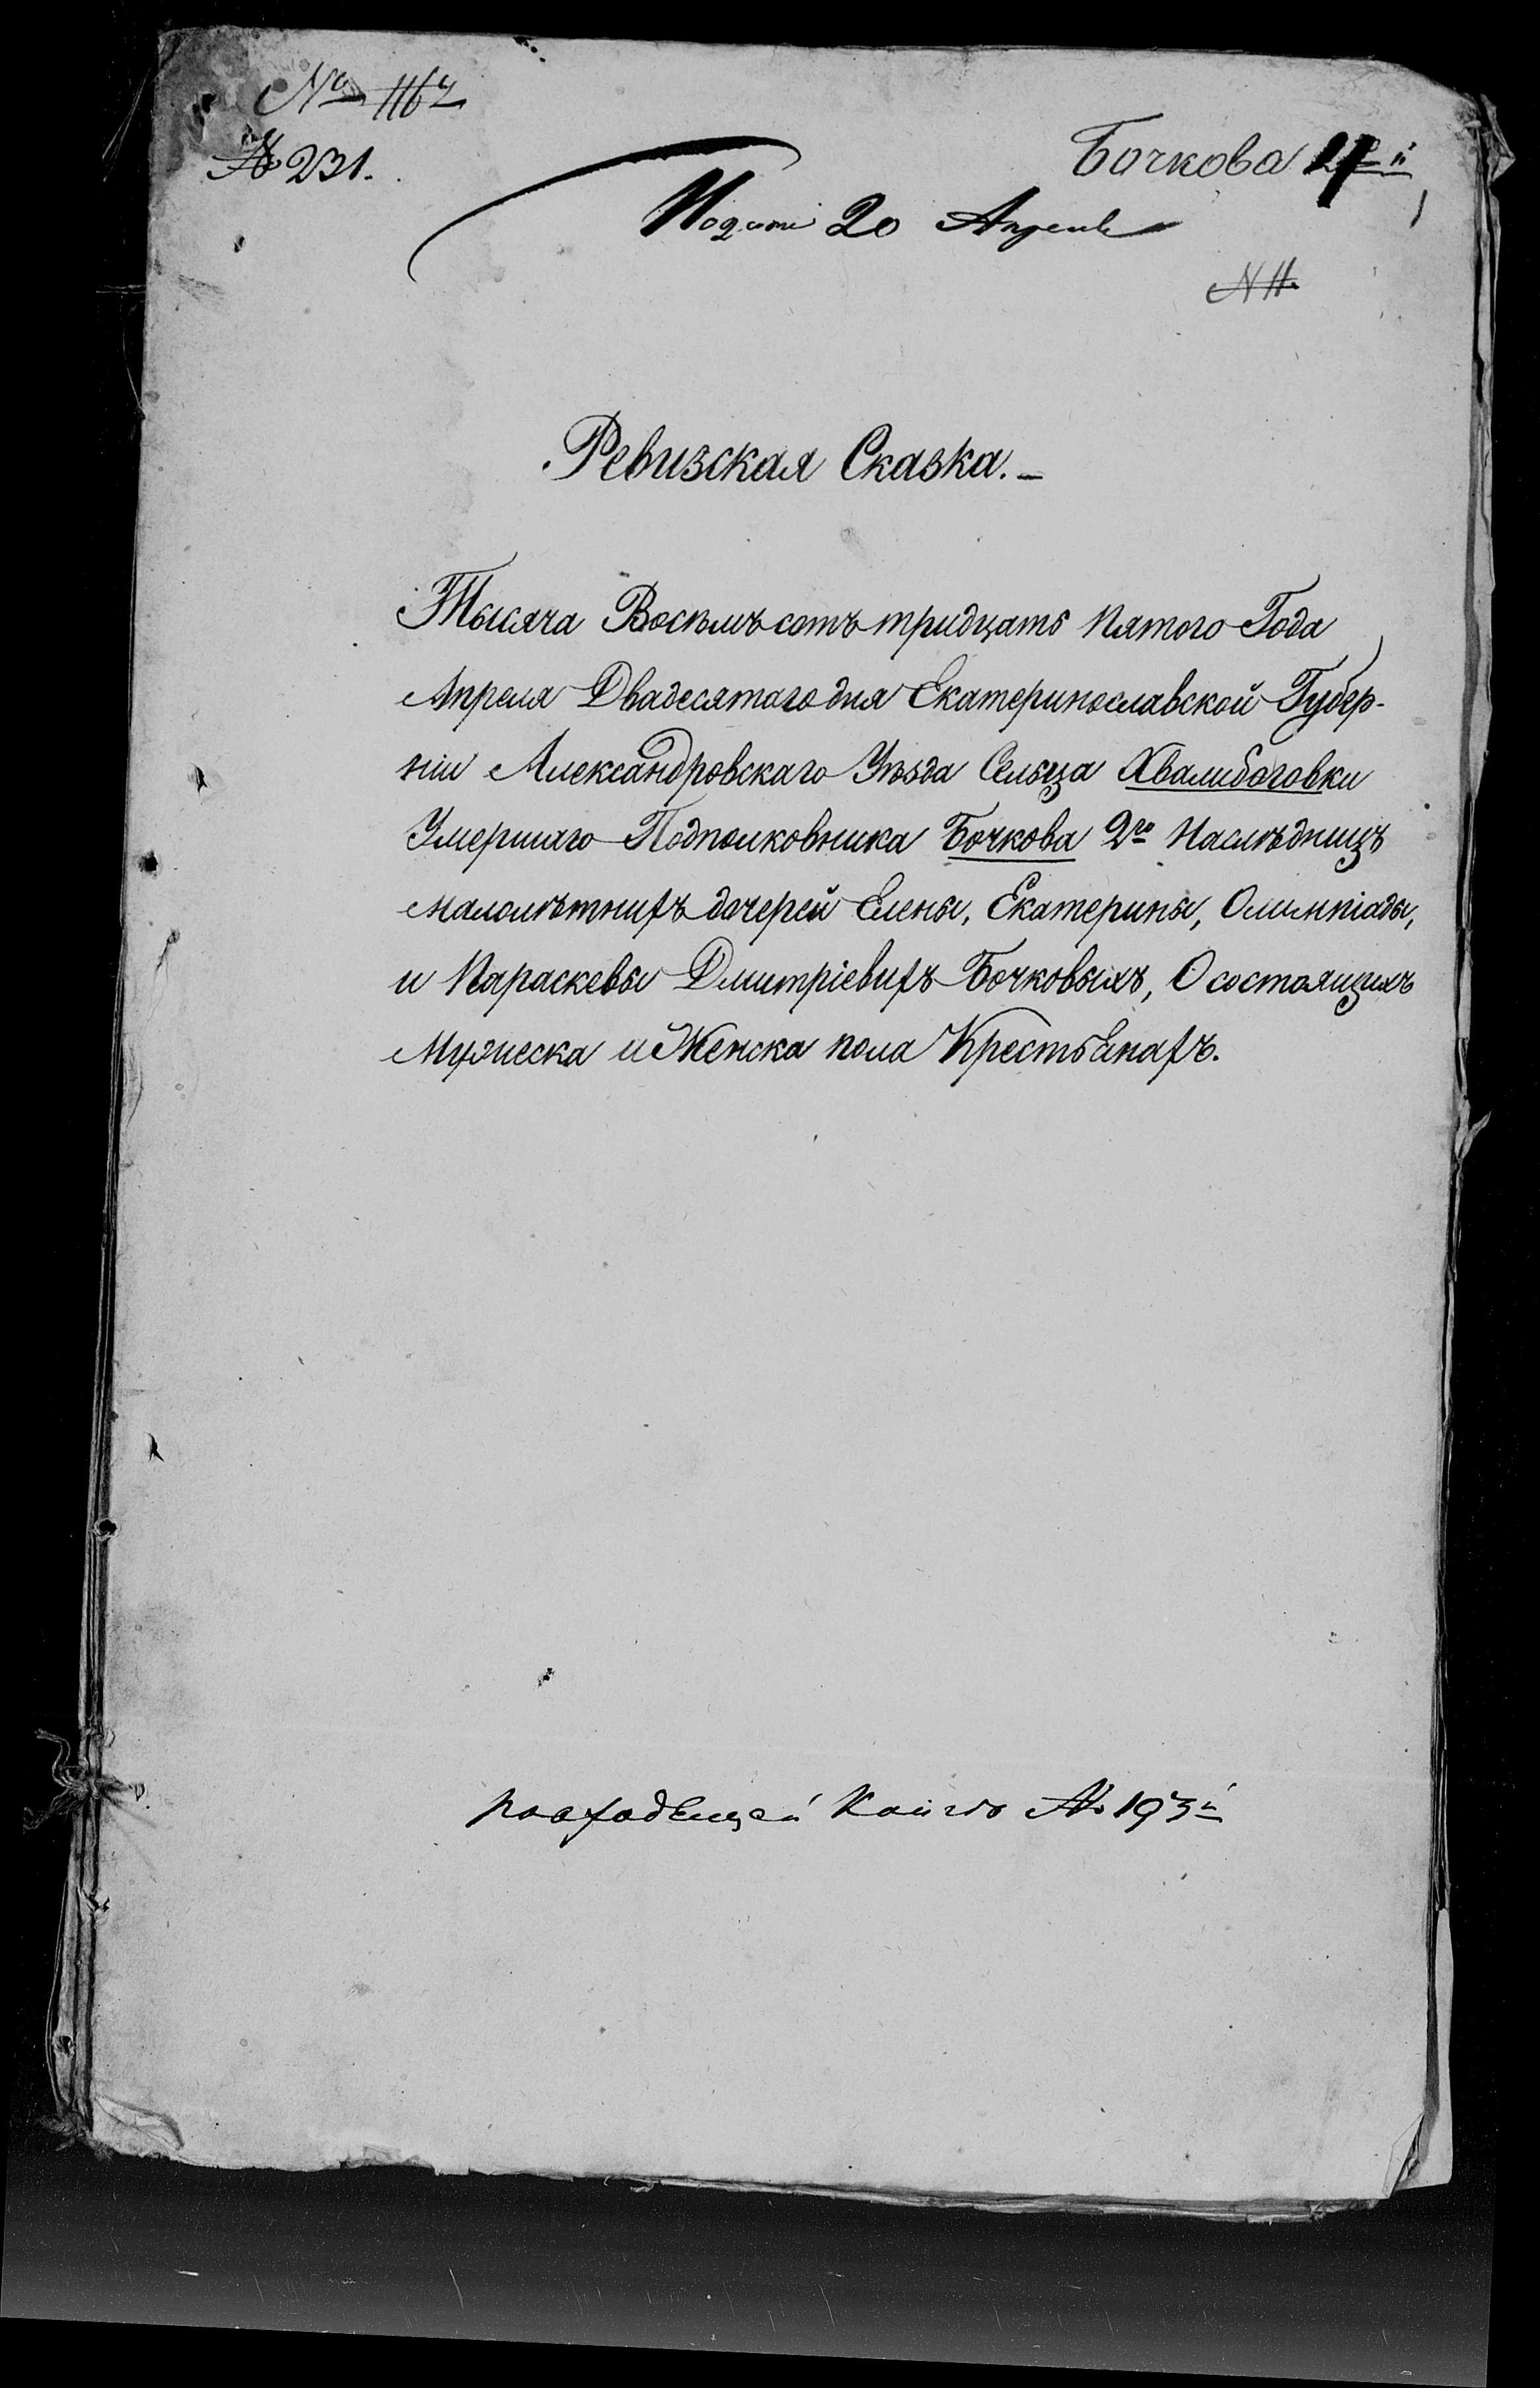 № 116
№ 231.
Бочкова
Подана 20 Апреля
N 11.
Ревизская Сказка.
Тысяча Восемъ сотъ тридцать пятого Года
Апреля Двадесятаго дня Екатеринославской Губер-
ніи Александровскаго Уѣзда Сельца Хвалибоговки
Умершаго Подполковника Бочкова 2го Наслѣдницъ
малолѣтнихъ дочерей Елены, Екатерины, Олимпіады,
и Параскевы Дмитріевихъ Бочковыхъ, О состоящихъ
Мужеска и Женска пола Крестьянахъ.
№ 193